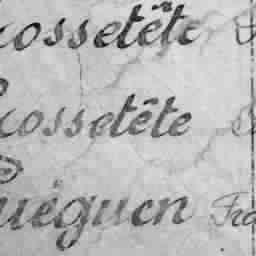 rossetête
rossetête
uéguen Fra